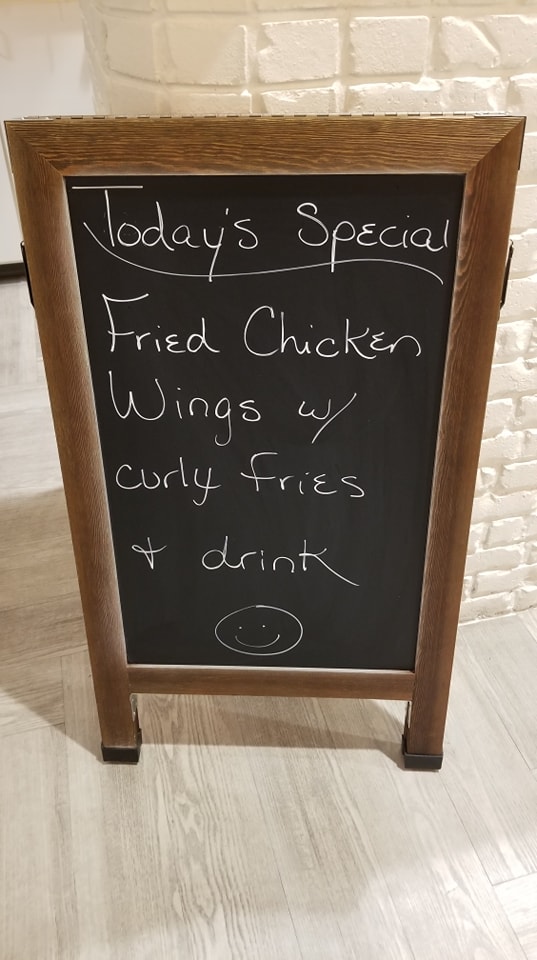 Today's Special
Fried Chicken
Wings w/
curly fries
& drink